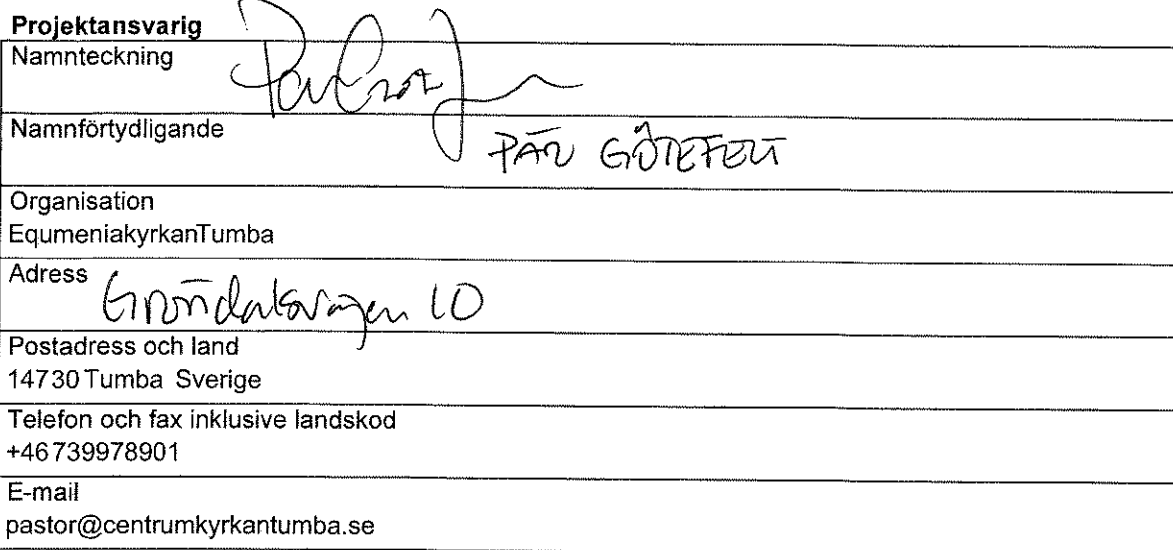 Projektansvarig
Namnteckning
Namnförtydligande
PÄR GÖTEFELT
Organisation
EqumeniakyrkanTumba
Adress
Gröndalsvägen 10
Postadress och land
14730 Tumba Sverige
Telefon och fax inklusive landskod
+46739978901
E-mail
pastor@centrumkyrkantumba.se